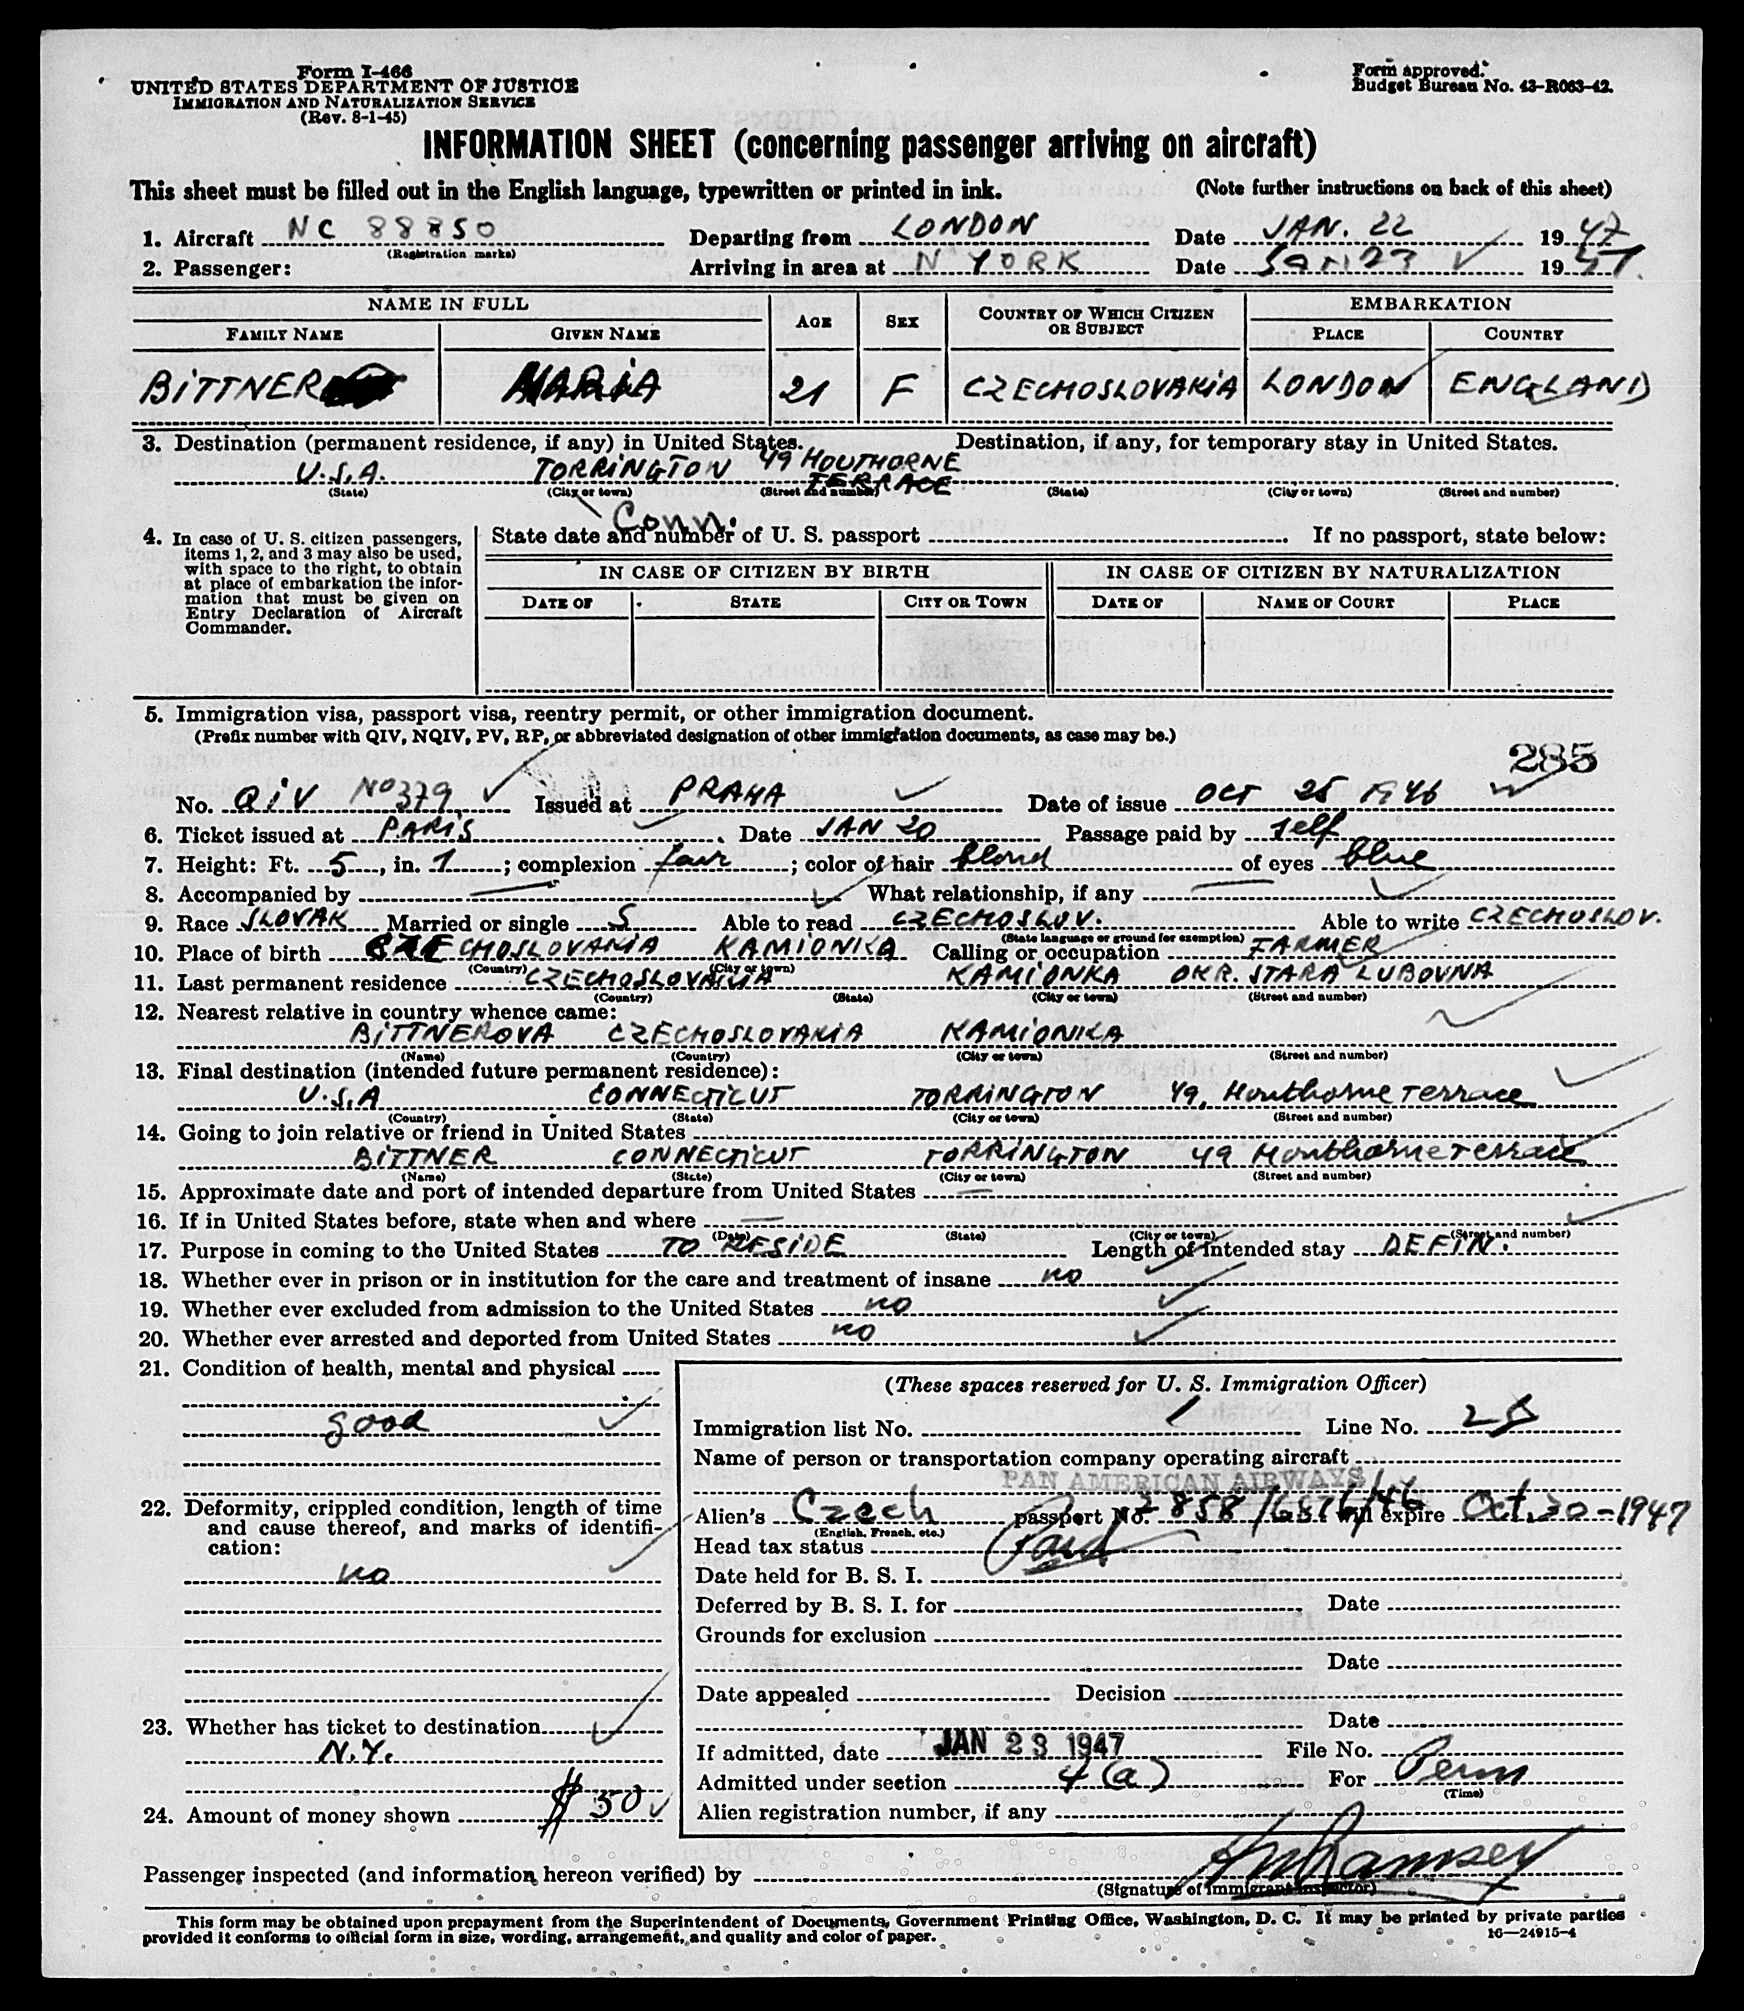 Form I-466
UNITED STATES DEPARTMENT OF JUSTICE
IMMIGRATION AND NATURALIZATION SERVICE
(Rev. 8-1-45)
Form approved.
Budget Bureau No. 43-R063-42.
INFORMATION SHEET (concerning passenger arriving on aircraft)
This sheet must be filled out in the English language, typewritten or printed in ink. (Note further instructions on back of this sheet)
1. Aircraft NC 88850 Departing from LONDON Date JAN. 22 1947
(Registration marks)
2. Passenger: Arriving in area at N YORK Date Jan 23 1947.
NAME IN FULL AGE SEX COUNTRY OF WHICH CITIZEN OR SUBJECT EMBARKATION
FAMILY NAME GIVEN NAME PLACE COUNTRY
BITTNER MARIA 21 F CZECHOSLOVAKIA LONDON ENGLAND
3. Destination (permanent residence, if any) in United States. Destination, if any, for temporary stay in United States.
U.S.A. TORRINGTON 49 HOUTHORNE TERRACE
(State) (City or town) (Street and number) (State) (City or town) (Street and number)
Conn.
4. In case of U. S. citizen passengers, items 1, 2, and 3 may also be used, with space to the right, to obtain at place of embarkation the information that must be given on Entry Declaration of Aircraft Commander.
State date and number of U. S. passport . If no passport, state below:
IN CASE OF CITIZEN BY BIRTH IN CASE OF CITIZEN BY NATURALIZATION
DATE OF STATE CITY OR TOWN DATE OF NAME OF COURT PLACE
5. Immigration visa, passport visa, reentry permit, or other immigration document.
(Prefix number with QIV, NQIV, PV, RP, or abbreviated designation of other immigration documents, as case may be.)
285
No. QIV No 379 Issued at PRAHA Date of issue OCT 25 1946
6. Ticket issued at PARIS. Date JAN 20 Passage paid by self
7. Height: Ft. 5, in. 1; complexion fair; color of hair blond of eyes blue
8. Accompanied by — What relationship, if any —
9. Race SLOVAK Married or single S Able to read CZECHOSLOV. Able to write CZECHOSLOV.
(State language or ground for exemption)
10. Place of birth CZECHOSLOVAKIA KAMIONKA Calling or occupation FARMER
(Country) (City or town)
11. Last permanent residence CZECHOSLOVAKIA KAMIONKA OKR. STARA LUBOVNA
(Country) (State) (City or town) (Street and number)
12. Nearest relative in country whence came:
BITTNEROVA CZECHOSLOVAKIA KAMIONKA
(Name) (Country) (City or town) (Street and number)
13. Final destination (intended future permanent residence):
U.S.A CONNECTICUT TORRINGTON 49, Houthorne Terrace
(Country) (State) (City or town) (Street and number)
14. Going to join relative or friend in United States
BITTNER CONNECTICUT TORRINGTON 49 Houthorne Terrace
(Name) (State) (City or town) (Street and number)
15. Approximate date and port of intended departure from United States —
16. If in United States before, state when and where —
(Date) (State) (City or town) (Street and number)
17. Purpose in coming to the United States TO RESIDE Length of intended stay DEFIN.
18. Whether ever in prison or in institution for the care and treatment of insane no
19. Whether ever excluded from admission to the United States no
20. Whether ever arrested and deported from United States no
21. Condition of health, mental and physical
good
22. Deformity, crippled condition, length of time and cause thereof, and marks of identification:
no
23. Whether has ticket to destination
N.Y.
24. Amount of money shown $50
(These spaces reserved for U. S. Immigration Officer)
Immigration list No. 1 Line No.
Name of person or transportation company operating aircraft
PAN AMERICAN AIRWAYS
Alien's Czech passport No. will expire Oct. 20-1947
(English, French, etc.)
Head tax status Paid
Date held for B. S. I.
Deferred by B. S. I. for , Date
Grounds for exclusion
Date
Date appealed Decision
Date
If admitted, date JAN 23 1947 File No.
Admitted under section 4 (a) For Perm
(Time)
Alien registration number, if any
Passenger inspected (and information hereon verified) by Ramsey
(Signature of immigrant inspector)
This form may be obtained upon prepayment from the Superintendent of Documents, Government Printing Office, Washington, D. C. It may be printed by private parties
provided it conforms to official form in size, wording, arrangement, and quality and color of paper. 16—24915-4